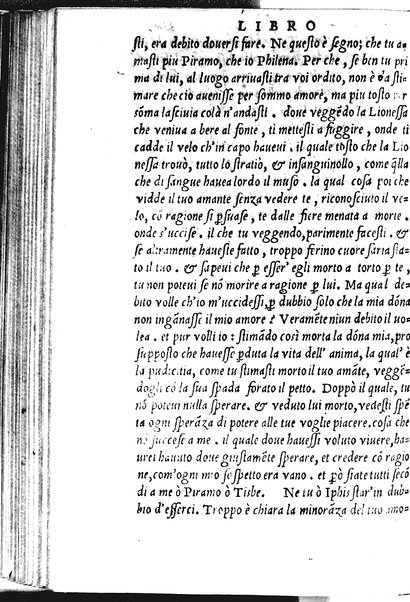 LIBRO
sti, era debito doversi fare. Ne questo è segno; che tu a-
masti piu Piramo, che io Philena. Per che, se ben tu pri
ma di lui, al luogo arrivasti tra voi ordito, non è da sti-
mare che ciò avenisse per sommo amore, ma piu tosto per
sōma lascivia colà n'andasti. dove veggēdo la Lionessa
che veniva a bere al fonte, ti mettesti a fuggire, onde ti
cadde il velo ch'in capo havevi. il quale tosto che la Lio
nessa trovò, tutto lo stratiò, & insanguinollo, come q̃lla
che di sangue haveva lordo il muso. la qual cosa poi che
vidde il tuo amante senza vedere te, riconosciuto il ve-
lo, cō ragione si p̱suase, te dalle fiere menata a morte.
onde s'uccise. il che tu veggendo, parimente facesti. &
se altramente haveste fatto, troppo ferino cuore saria sta-
to il tuo. & sapevi che p̱ esser' egli morto a torto p̱ te,
tu non potevi se nō morire a ragione p̱ lui. Ma qual de-
bito volle ch'io m'uccidessi, p̱ dubbio solo che la mia dōna
non ingānasse il mio amore? Veramēte niun debito il vo-
lea. et pur volli io: stimādo così morta la dōna mia, pro
supposto che havesse p̱duta la vita dell'anima, la qual'è
la pudicitia, come tu stimasti morto il tuo amāte, veggē-
dogli cō la sua spada forato il petto. Doppò il quale, tu
nō potevi nulla sperare. & veduto lui morto, vedesti spē
ta ogni sperāza di potere alle tue voglie piacere. cosa che
nō successe a me. il quale dove havessi voluto vivere, ha-
urei havuto dove giustamēte sperare, et credere cō ragio
ne, com'ogni mio sospetto era vano. et p̱ò siate tutti secō
di a me ò Piramo ò Tisbe. Ne tu ò Iphis star'in dub-
bio d'esserci. Troppo è chiara la minorāza del tuo amo-